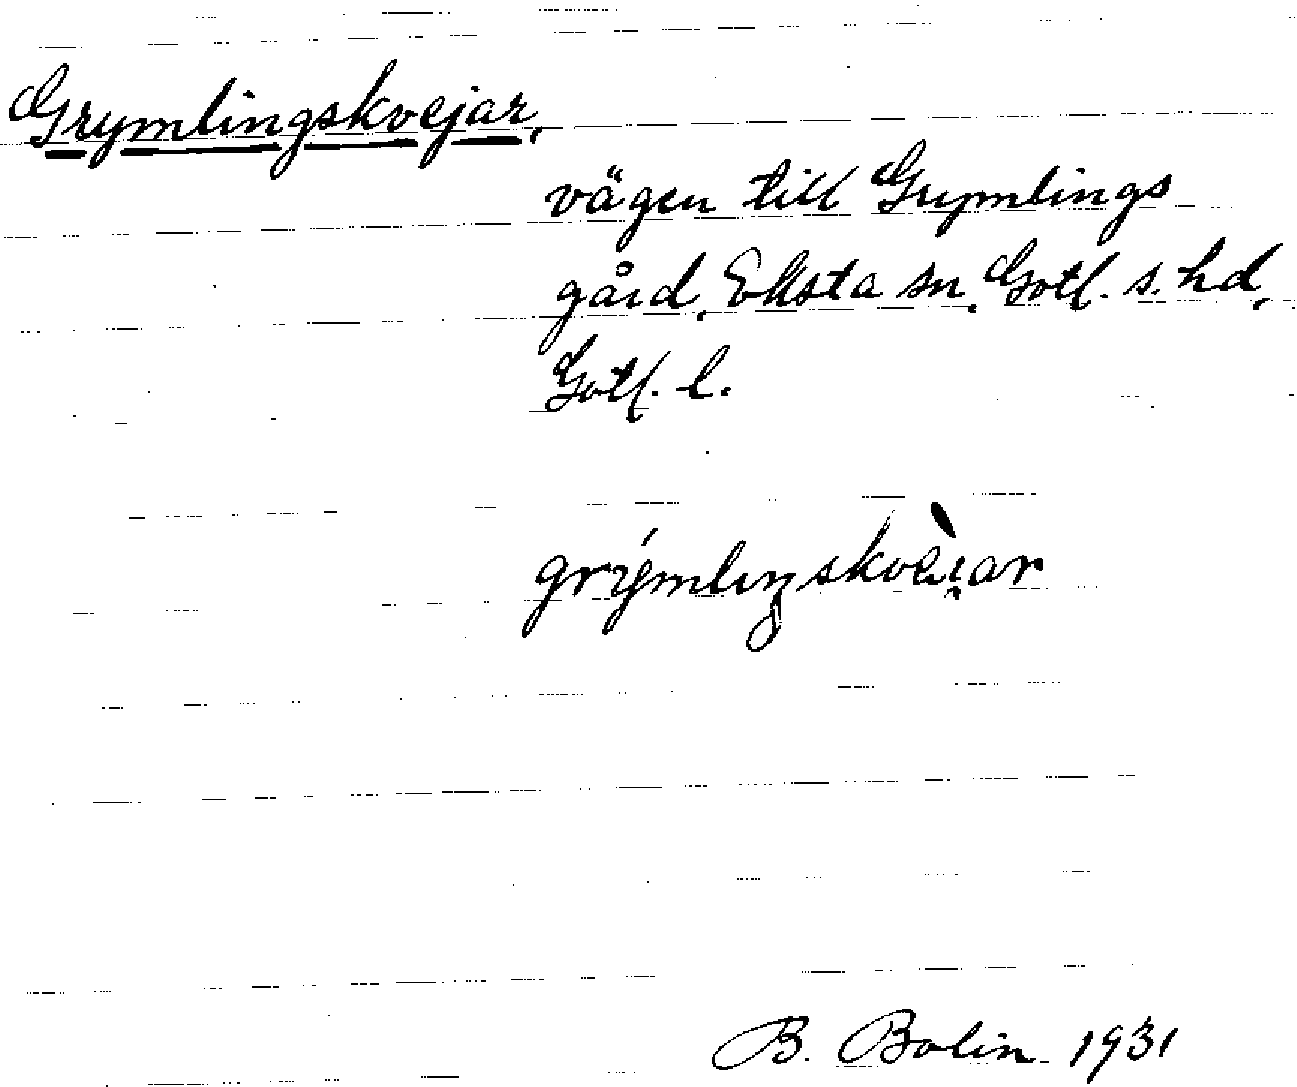 Grymlingskvejar,
vägen till Grymlings
gård, Eksta sn, Gotl. s. hd,
Gotl. l.
grýmlıŋskvèi̯ar
B. Bolin 1931